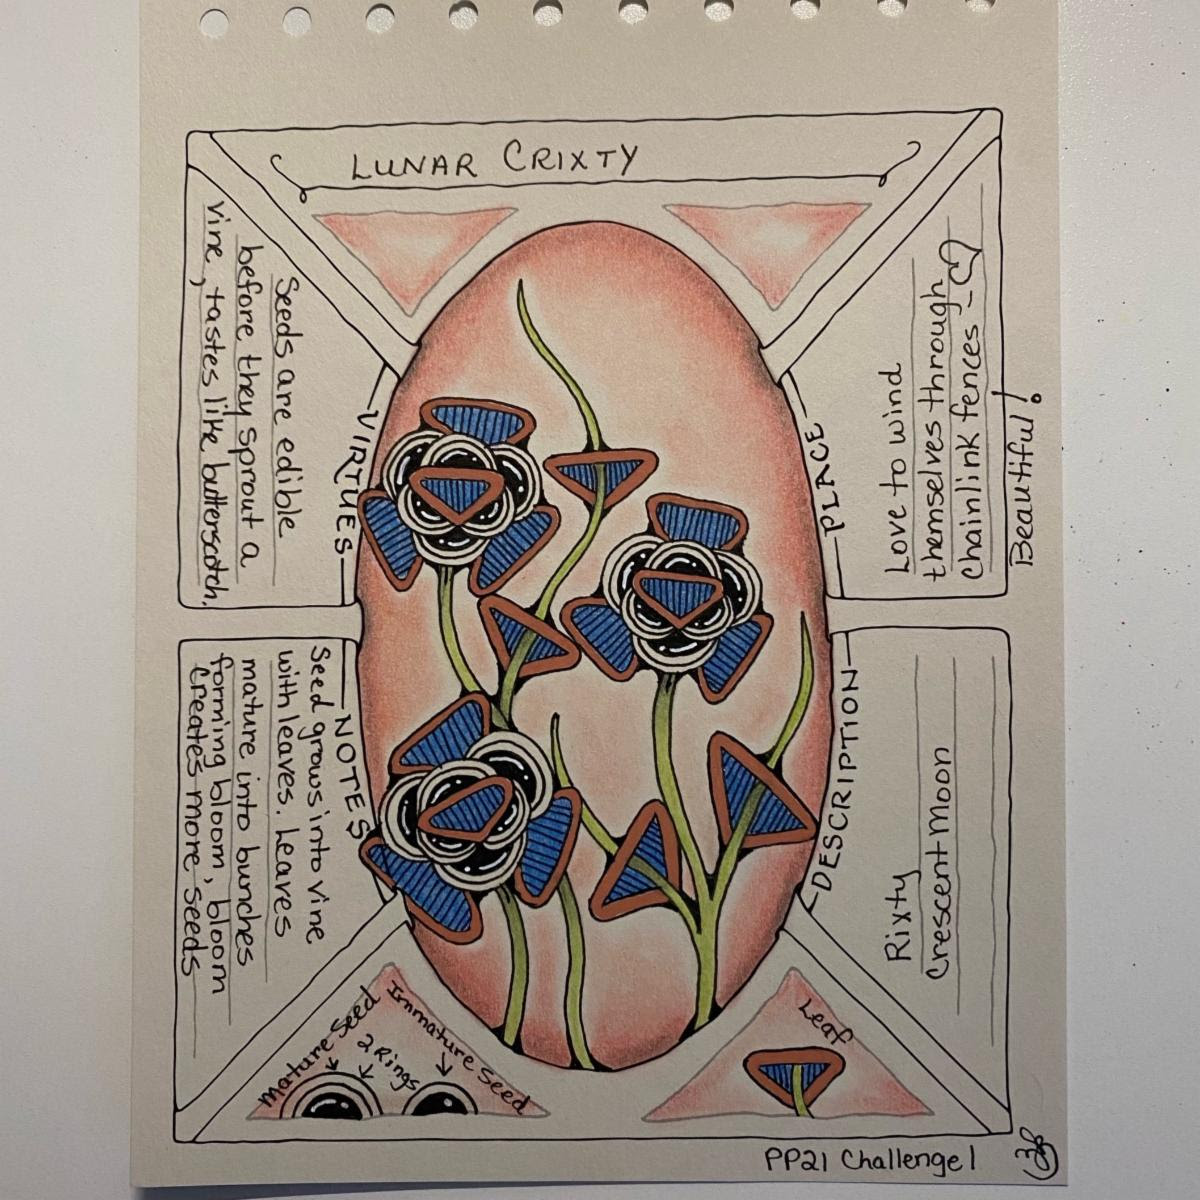 LUNAR CRIXTY
VIRTUES
Seeds are edible
before they sprout a
vine, tastes like butterscotch.
PLACE
Love to wind
themselves through
Chainlink fences - ♡
Beautiful!
NOTES
Seed grows into vine
with leaves. Leaves
mature into bunches
forming bloom, bloom
creates more seeds
DESCRIPTION
Rixty
Crescent Moon
Mature Seed
2 Rings
Immature Seed
Leaf
PP21 Challenge 1